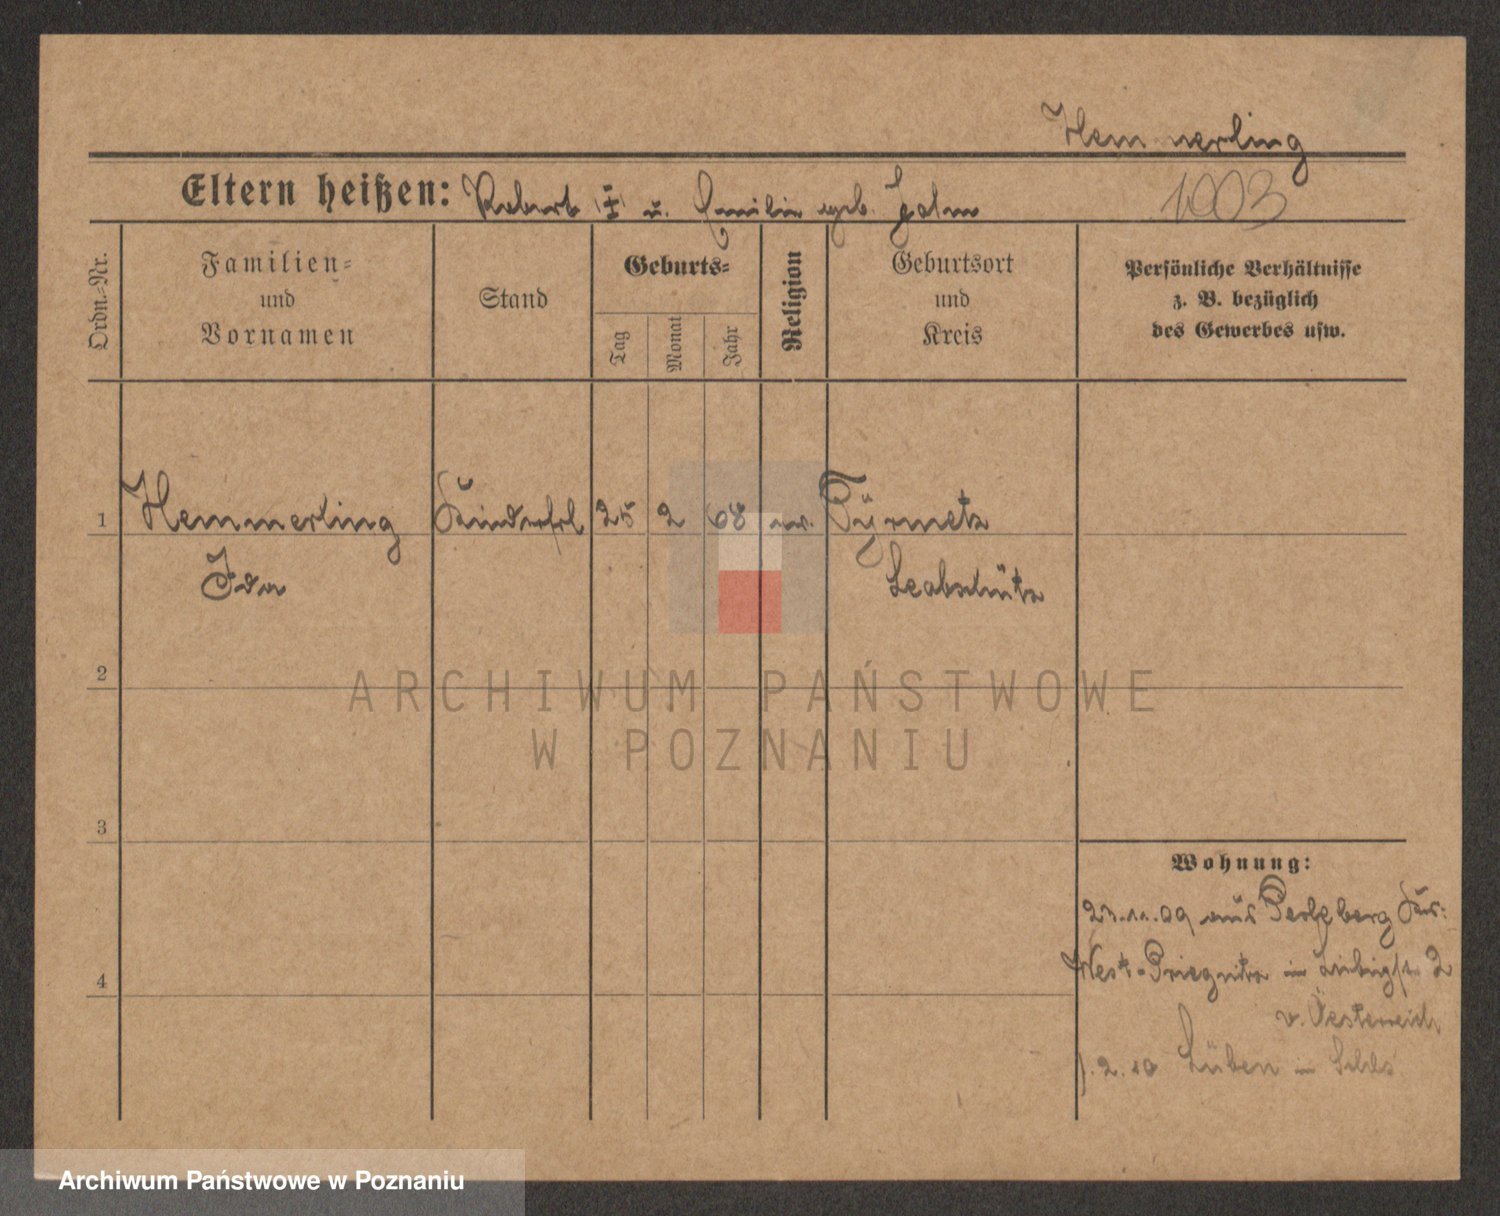 Hemmerling
Eltern heißen: Robert (‡) u. Emilie geb.
1903
Ordn.-Nr.
Familien-
und
Vornamen
Stand
Geburts-
Tag
Monat
Jahr
Religion
Geburtsort
und
Kreis
Persönliche Verhältnisse
z. B. bezüglich
des Gewerbes usw.
1 Hemmerling Kinderfrl 25 2 68 Türmetz
Ida Leobschütz
2
ARCHIWUM PAŃSTWOWE
W POZNANIU
3
Wohnung:
23.11.09 aus Perleberg Krs:
4
West-Priegnitz in 2
v. Oesterreich
1.2.10 Lüben in Schles
Archiwum Państwowe w Poznaniu